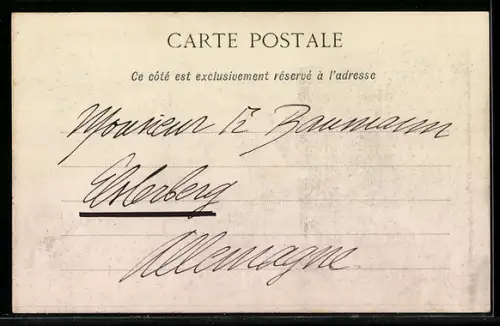 CARTE POSTALE
Ce côté est exclusivement réservé à l'adresse
Monsieur R Baumann
Elsterberg
Allemagne